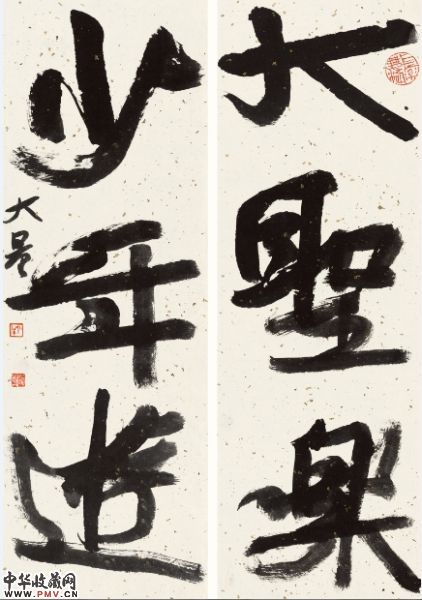 大聖樂
少年遊
大
中华收藏网
www.PMV.CN